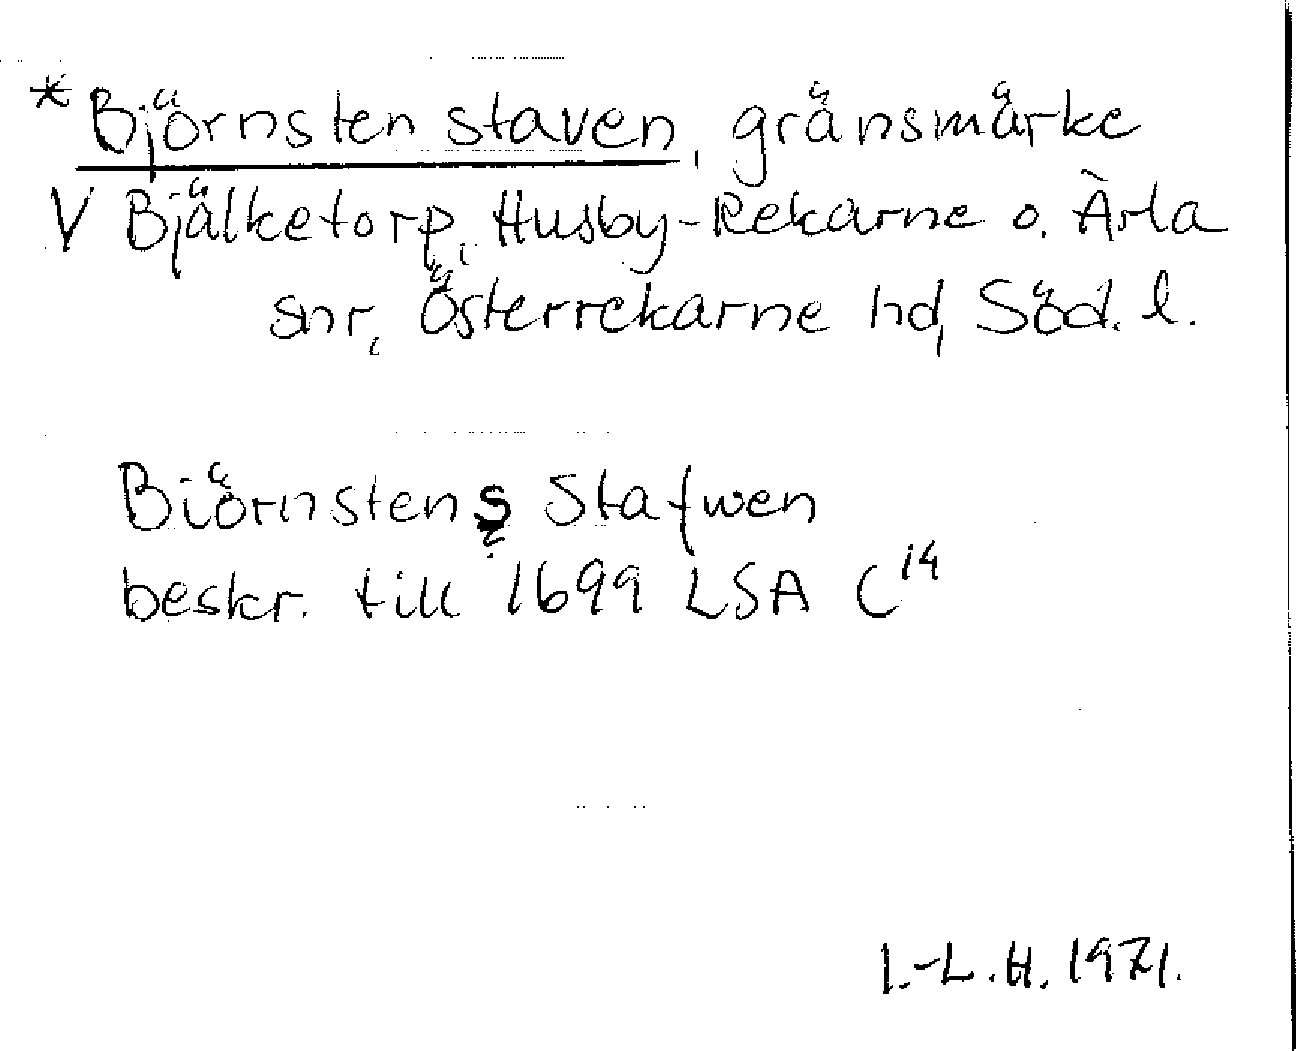 * Björnsten staven, gränsmärke
V Bjälketorp, Husby-Rekarne o. Ärla
snr, Österrekarne hd, Söd. l.
Biörnstens Stafwen
beskr. till 1699 LSA C14
I.-L.H. 1971.